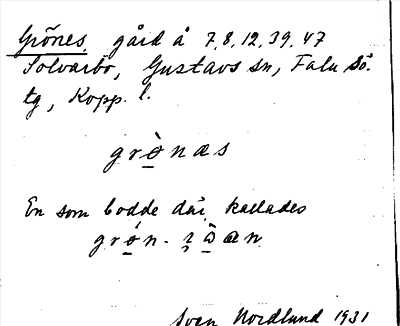 Grönes, gård å 7, 8, 12, 39, 47
Solvarbo, Gustavs sn, Falu Sö.
tg, Kopp. l.
grò̱næs
En som bodde där, kallades
Sven Nordlund 1931